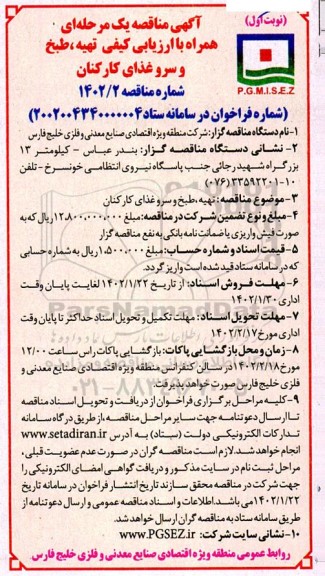 (نوبت اول)
آگهی مناقصه یک مرحله‌ای
همراه با ارزیابی کیفی تهیه، طبخ
و سرو غذای کارکنان
P.G.M.I.S.E.Z
شماره مناقصه ۱۴۰۲/۲
(شماره فراخوان در سامانه ستاد ۲۰۰۲۰۰۴۳۴۰۰۰۰۰۰۴)
۱-نام دستگاه مناقصه گزار: شرکت منطقه ویژه اقتصادی صنایع معدنی و فلزی خلیج فارس
۲- نشانی دستگاه مناقصه گزار: بندر عباس - کیلومتر ۱۳
بزرگراه شهید رجائی جنب پاسگاه نیروی انتظامی خونسرخ - تلفن
۱۰-۳۳۵۹۲۲۰۱ (۰۷۶)
۳-موضوع مناقصه: تهیه، طبخ و سرو غذای کارکنان
۴-مبلغ و نوع تضمین شرکت در مناقصه: مبلغ ۱۲,۸۰۰,۰۰۰,۰۰۰ ریال که به
صورت فیش واریزی یا ضمانت نامه بانکی به نفع مناقصه گزار
۵- قیمت اسناد و شماره حساب: مبلغ ۱,۵۰۰,۰۰۰ ریال به شماره حسابی
که در سامانه ستاد قید شده است واریز گردد.
۶-مهلت فروش اسناد: از تاریخ ۱۴۰۲/۱/۲۲ لغایت پایان وقت
اداری ۱۴۰۲/۱/۳۰
۷-مهلت تحویل اسناد: مهلت تکمیل و تحویل اسناد حداکثر تا پایان وقت
اداری مورخ ۱۴۰۲/۲/۱۷
۸-زمان و محل بازگشایی پاکات: بازگشایی پاکات راس ساعت ۱۲/۰۰
مورخ ۱۴۰۲/۲/۱۸ در سالن کنفرانس منطقه ویژه اقتصادی صنایع معدنی و
فلزی خلیج فارس صورت خواهد پذیرفت.
۹-کلیه مراحل برگزاری فراخوان از دریافت و تحویل اسناد مناقصه
تا ارسال دعوتنامه جهت سایر مراحل مناقصه، از طریق درگاه سامانه
تدارکات الکترونیکی دولت (ستاد) به آدرس www.setadiran.ir
انجام خواهد شد. لازم است مناقصه گران در صورت عدم عضویت قبلی،
مراحل ثبت نام در سایت مذکور و دریافت گواهی امضای الکترونیکی را
جهت شرکت در مناقصه محقق سازند تاریخ انتشار فراخوان در سامانه تاریخ
۱۴۰۲/۱/۲۲ می باشد. اطلاعات و اسناد مناقصه عمومی و ارسال دعوتنامه از
طریق سامانه ستاد به مناقصه گران ارسال خواهد شد.
۱۰-نشانی سایت شرکت: www.PGSEZ.ir
روابط عمومی منطقه ویژه اقتصادی صنایع معدنی و فلزی خلیج فارس